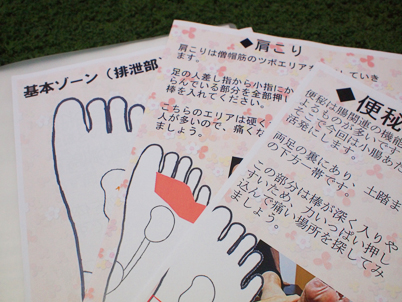 基本ゾーン（排泄部
◆肩こり
肩こりは僧帽筋のツボエリアを
いていき
ます。
足の人差し指から小指にか
らんでいる部分を全部押し
棒を入れてください。
こちらのエリアは硬く
人が多いので、痛くな
ましょう。
◆便秘
便秘は腸関連の機能
よるものが多いです
そこで今回は小腸あた
活発にします。
両足の裏にあり、土踏ま
の下方一帯です。
この部分は棒が深く入りや
すいため、力いっぱい押し
込んで痛い場所を探してみ
ましょう。